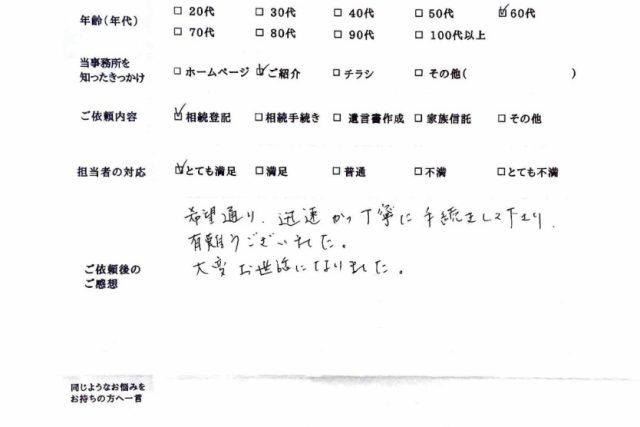 年齢(年代) □20代 □30代 □40代 □50代 ☑60代
□70代 □80代 □90代 □100代以上
当事務所を
知ったきっかけ □ホームページ ☑ご紹介 □チラシ □その他( )
ご依頼内容 ☑相続登記 □相続手続き □遺言書作成 □家族信託 □その他
担当者の対応 ☑とても満足 □満足 □普通 □不満 □とても不満
希望通り、迅速かつ丁寧に手続きをして下さり、
有難うございました。
大変お世話になりました。
ご依頼後の
ご感想
同じようなお悩みを
お持ちの方へ一言